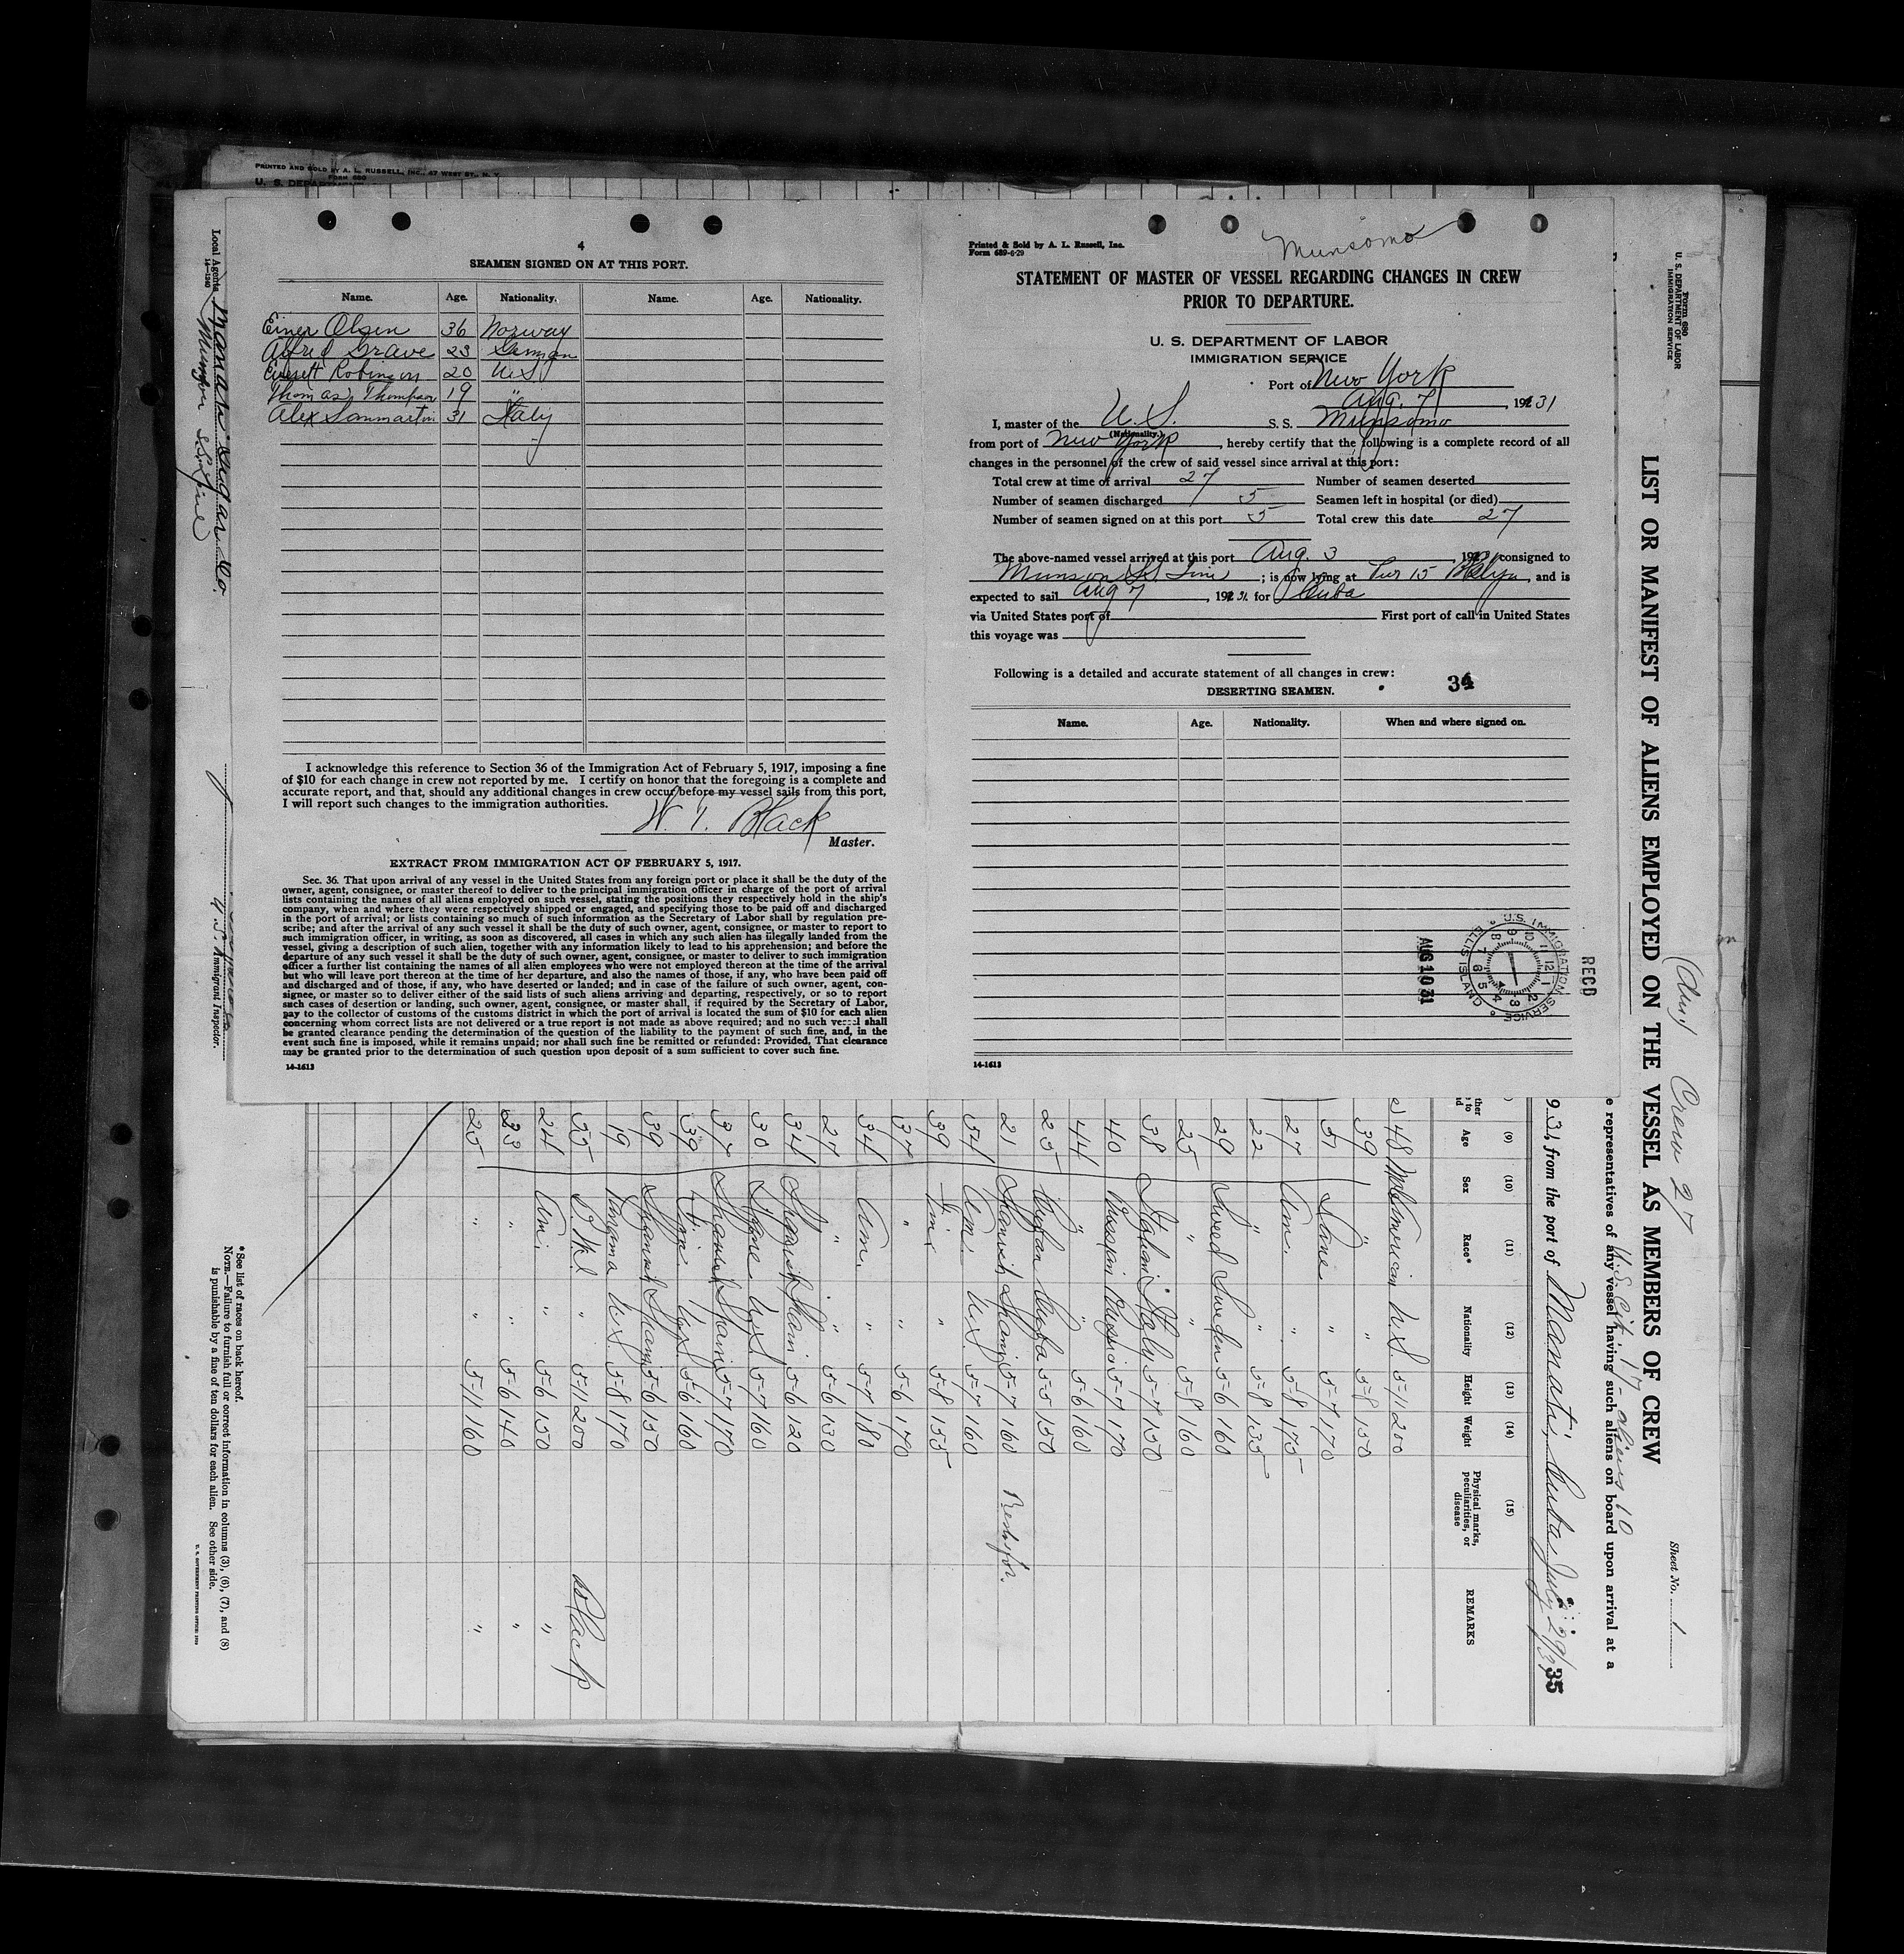 PRINTED AND SOLD BY A. L. RUSSELL, INC., 47 WEST ST., N. Y.
FORM 680
4
SEAMEN SIGNED ON AT THIS PORT.
Name. Age. Nationality. Name. Age. Nationality.
Einer Olsen 36 Norway
Alfred Grave 23 German
Everett Robinson 20 U.S.
Thomas Thompson 19 "
Alex Sanmartin 31 Italy
I acknowledge this reference to Section 36 of the Immigration Act of February 5, 1917, imposing a fine
of $10 for each change in crew not reported by me. I certify on honor that the foregoing is a complete and
accurate report, and that, should any additional changes in crew occur before my vessel sails from this port,
I will report such changes to the immigration authorities.
W. T. Black
Master.
EXTRACT FROM IMMIGRATION ACT OF FEBRUARY 5, 1917.
Sec. 36. That upon arrival of any vessel in the United States from any foreign port or place it shall be the duty of the
owner, agent, consignee, or master thereof to deliver to the principal immigration officer in charge of the port of arrival
lists containing the names of all aliens employed on such vessel, stating the positions they respectively hold in the ship's
company, when and where they were respectively shipped or engaged, and specifying those to be paid off and discharged
in the port of arrival; or lists containing so much of such information as the Secretary of Labor shall by regulation pre-
scribe; and after the arrival of any such vessel it shall be the duty of such owner, agent, consignee, or master to report to
such immigration officer, in writing, as soon as discovered, all cases in which any such alien has illegally landed from the
vessel, giving a description of such alien, together with any information likely to lead to his apprehension; and before the
departure of any such vessel it shall be the duty of such owner, agent, consignee, or master to deliver to such immigration
officer a further list containing the names of all alien employees who were not employed thereon at the time of the arrival
but who will leave port thereon at the time of her departure, and also the names of those, if any, who have been paid off
and discharged and of those, if any, who have deserted or landed; and in case of the failure of such owner, agent, con-
signee, or master so to deliver either of the said lists of such aliens arriving and departing, respectively, or so to report
such cases of desertion or landing, such owner, agent, consignee, or master shall, if required by the Secretary of Labor,
pay to the collector of customs of the customs district in which the port of arrival is located the sum of $10 for each alien
concerning whom correct lists are not delivered or a true report is not made as above required; and no such vessel shall
be granted clearance pending the determination of the question of the liability to the payment of such fine, and, in the
event such fine is imposed, while it remains unpaid; nor shall such fine be remitted or refunded: Provided, That clearance
may be granted prior to the determination of such question upon deposit of a sum sufficient to cover such fine.
14-1613
Munsomo
Printed & Sold by A. L. Russell, Inc.
Form 689-6-29
STATEMENT OF MASTER OF VESSEL REGARDING CHANGES IN CREW
PRIOR TO DEPARTURE.
U. S. DEPARTMENT OF LABOR
IMMIGRATION SERVICE
Port of New York
Aug. 7, 1931
I, master of the U. S. S. S. Munsomo
(Nationality.)
from port of New York, hereby certify that the following is a complete record of all
changes in the personnel of the crew of said vessel since arrival at this port:
Total crew at time of arrival 27 Number of seamen deserted
Number of seamen discharged 5 Seamen left in hospital (or died)
Number of seamen signed on at this port 5 Total crew this date 27
The above-named vessel arrived at this port Aug. 3, 1931, consigned to
Munson SS Line; is now lying at Pier 15 Bklyn, and is
expected to sail Aug 7, 1931 for Cuba
via United States port of First port of call in United States
this voyage was
Following is a detailed and accurate statement of all changes in crew:
34
DESERTING SEAMEN.
Name. Age. Nationality. When and where signed on.
RECD
U.S. IMMIGRATION SERVICE ELLIS ISLAND
AUG 10 31
14-1613
Form 680
U. S. DEPARTMENT OF LABOR
IMMIGRATION SERVICE
Sheet No. 1
Crew 27
LIST OR MANIFEST OF ALIENS EMPLOYED ON THE VESSEL AS MEMBERS OF CREW
U.S. Cit. 17 - aliens 10
e representatives of any vessel having such aliens on board upon arrival at a
931, from the port of Manati, Cuba, July 29/31
35
(9) (10) (11) (12) (13) (14) (15)
Age Sex Race* Nationality Height Weight Physical marks, peculiarities, or disease REMARKS
48 M American U.S. 5-11 200
39 " " 5-8 150
51 Dane " 5-7 170
27 Am. " 5-8 175
22 " " 5-8 135
29 Swed Sweden 5-6 160
25 " " 5-8 160
38 Italian Italy 5-7 150
40 Russian Russia 5-7 170
44 " " 5-6 160
25 Cuban Cuba 5-5 150
21 Spanish Spain 5-7 160
54 Am. U.S. 5-7 160
39 Fin " 5-8 155
37 " " 5-6 170
34 Am. " 5-7 180
27 " " 5-6 130
34 Spanish Spain 5-6 120
30 U.S. 5-7 160
37 Spanish Spain 5-7 170
39 Fin. U.S. 5-6 160
39 Spanish Spain 5-6 150
19 Panama U.S. 5-8 170
55 " 5-11 200 Black
24 Am. " 5-6 150 "
23 " " 5-6 140 "
25 " " 5-11 160 "
* See list of races on back hereof.
NOTE.—Failure to furnish full or correct information in columns (3), (6), (7), and (8)
is punishable by a fine of ten dollars for each alien. See other side.
Local Agents Manati Sugar Co.
14-1240
Munson S.S. Line
U. S. Immigrant Inspector.